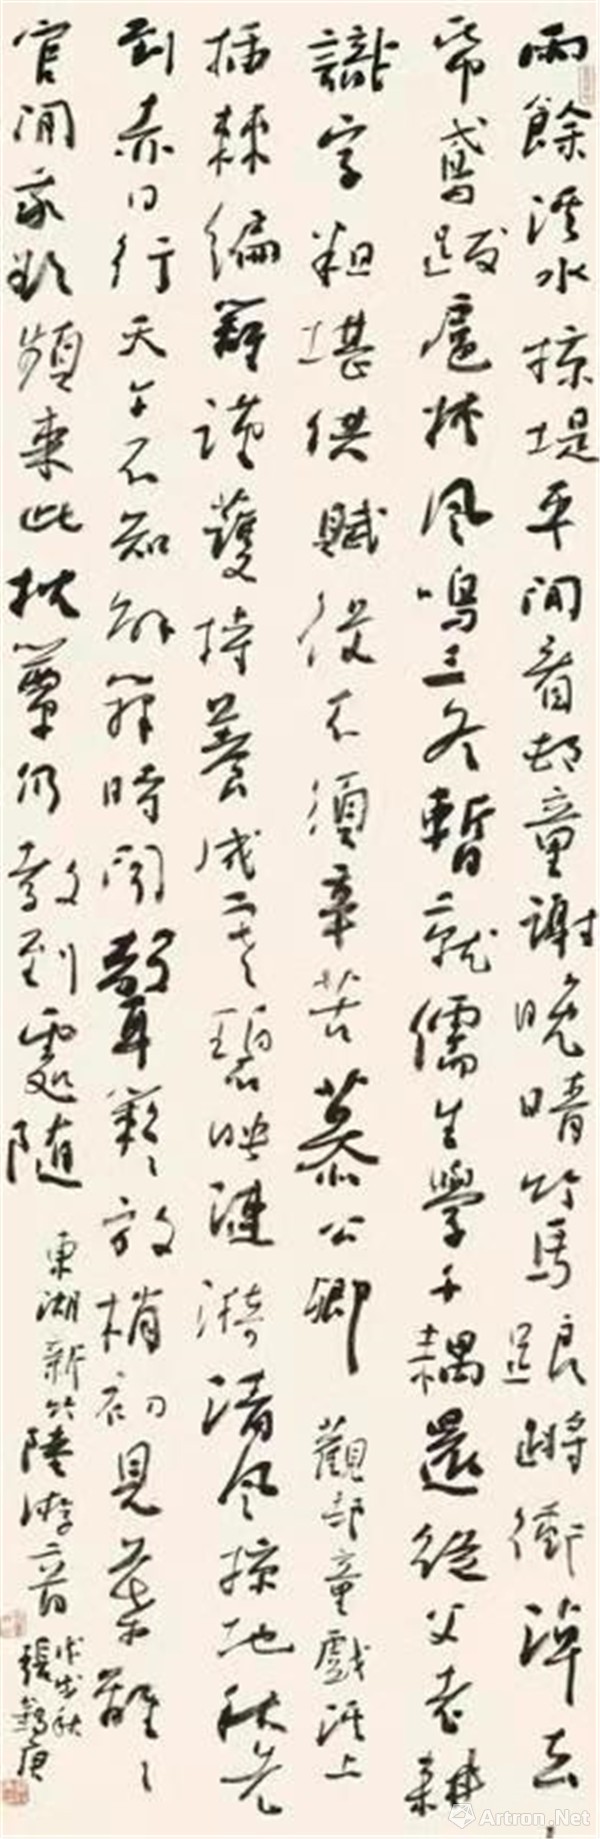 雨餘溪水掠堤平閒看邨童謝晚晴竹馬踉蹡衝淖去
帋鳶跋扈挾風鳴三冬暫就儒生學千耦還從父老耕
識字粗堪供賦役不須辛苦慕公卿 觀邨童戲溪上
插棘編籬謹護持養成寒碧映漣漪清風掠地秋先
到赤日行天午不知解籜時聞聲簌々放梢初見葉離々
官閒我欲頻來此枕簟仍教到處隨 東湖新竹陸游
戊戌秋
張錫庚
Artron.Net